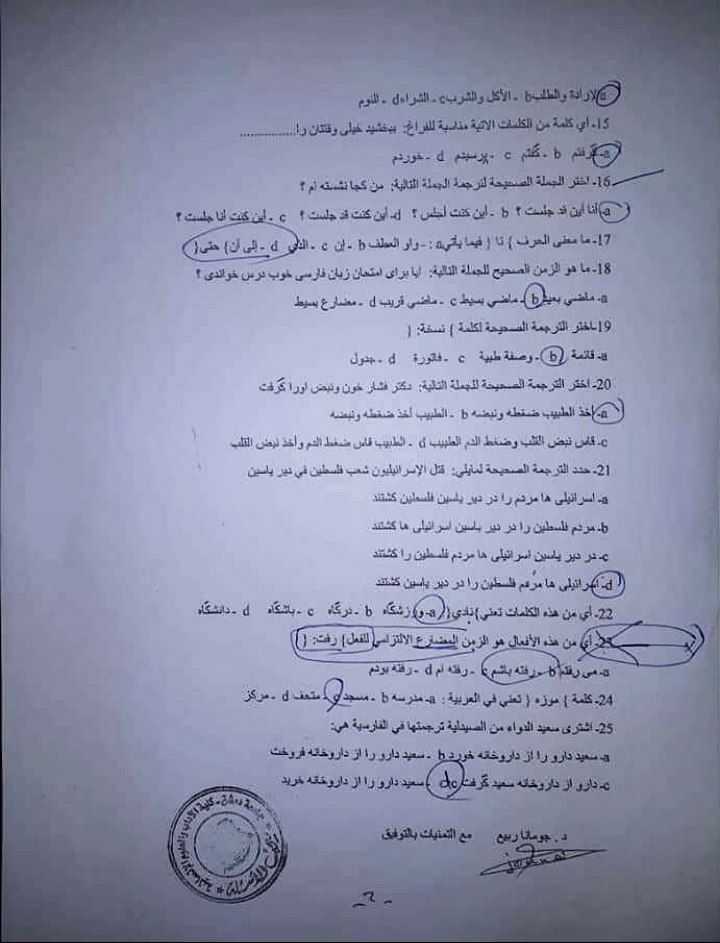 a- الإرادة والطلب b - الأكل والشرب c - الشراء d - النوم
15- أي كلمة من الكلمات الاتية مناسبة للفراغ: ببخشيد خيلى وقتتان را...............
a- گرفتم b - گفتم c - پرسيدم d - خوردم
16- اختر الجملة الصحيحة لترجمة الجملة التالية: من كجا نشسته ام ؟
a- أنا أين قد جلست ؟ b - أين كنت أجلس ؟ d- أين كنت قد جلست ؟ c - أين كنت أنا جلست ؟
17- ما معنى الحرف } تا { فيما يأتي: a - واو العطف b - إن c - الذي d - إلى أن} حتى{
18- ما هو الزمن الصحيح للجملة التالية: ايا براى امتحان زبان فارسى خوب درس خواندى ؟
a- ماضي بعيد b - ماضي بسيط c - ماضي قريب d - مضارع بسيط
19- اختر الترجمة الصحيحة لكلمة } نسخة: {
a- قائمة b - وصفة طبية c - فاتورة d - جدول
20- اختر الترجمة الصحيحة للجملة التالية: دكتر فشار خون ونبض اورا گرفت
a- أخذ الطبيب ضغطه ونبضه b - الطبيب أخذ ضغطه ونبضه
c- قاس نبض القلب وضغط الدم الطبيب d - الطبيب قاس ضغط الدم وأخذ نبض القلب
21- حدد الترجمة الصحيحة لمايلي: قتل الإسرائيليون شعب فلسطين في دير ياسين
a- اسرائيلى ها مردم را در دير ياسين فلسطين كشتند
b- مردم فلسطين را در دير ياسين اسرائيلى ها كشتند
c- در دير ياسين اسرائيلى ها مردم فلسطين را كشتند
d- اسرائيلى ها مردم فلسطين را در دير ياسين كشتند
22- أي من هذه الكلمات تعني}نادي{ a- ورزشگاه b - درگاه c - باشگاه d - دانشگاه
23- أي من هذه الأفعال هو الزمن المضارع الالتزامي للفعل} رفت: {
a- مى رفتم b - رفته باشم c - رفته ام d - رفته بودم
24- كلمة } موزه { تعني في العربية : a- مدرسه b - مسجد c - متحف d - مركز
25- اشترى سعيد الدواء من الصيدلية ترجمتها في الفارسية هي:
a- سعيد دارو را از داروخانه خورد b - سعيد دارو را از داروخانه فروخت
c- دارو از داروخانه سعيد گرفت d - سعيد دارو را از داروخانه خريد
د. جومانا ربيع مع التمنيات بالتوفيق
جامعة دمشق - كلية الآداب والعلوم الإنسانية
-2-